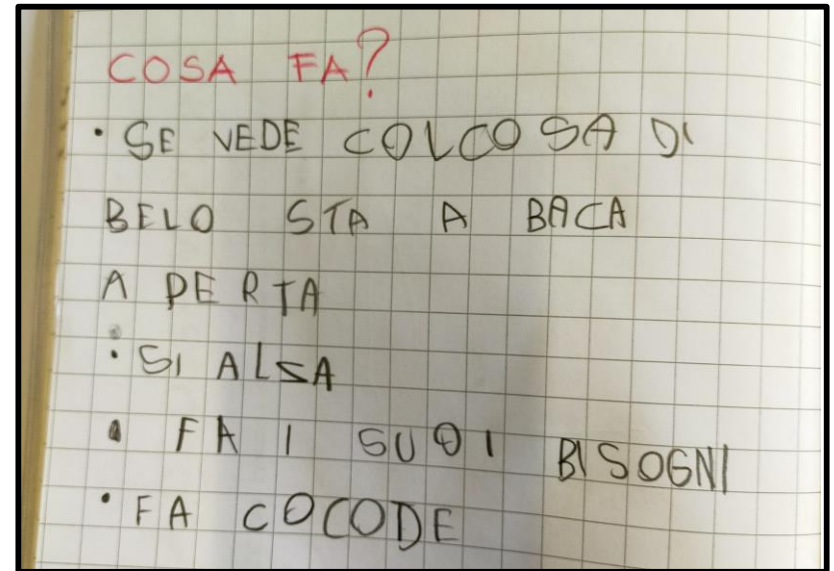 COSA FA?
• SE VEDE COLCOSA DI
BELO STA A BACA
APERTA
• SI ALSA
• FA I SUOI BISOGNI
• FA COCODE